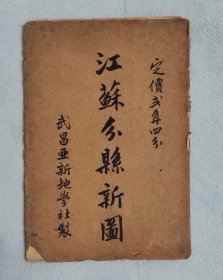 定價貳角四分
江蘇分縣新圖
武昌亞新地學社製